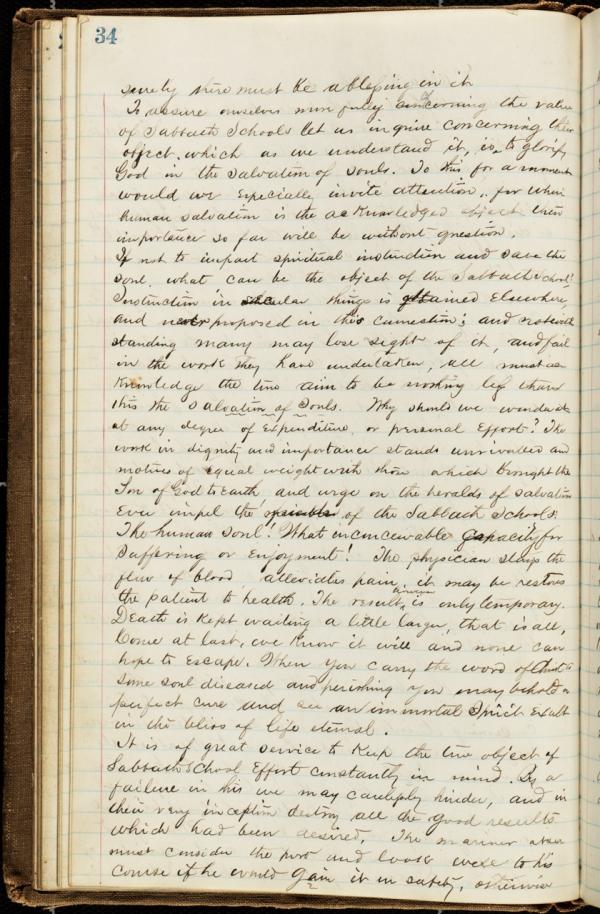 34
surely there must be a blessing in it
To assure ourselves more fully concerning the value
of Sabbath Schools let us inquire concerning their
object. which as we understand it, is, to glorify
God in the salvation of souls. To this for a moment
would we especially invite attention, for when
human salvation is the acknowledged object their
importance so far will be without question.
If not to impart spiritual instruction and save the
soul, what can be the object of the Sabbath School?
Instruction in secular things is obtained elsewhere,
and never proposed in this connection; and notwith
standing many may lose sight of it, and fail
in the work they have undertaken, all must ac
knowledge the true aim to be nothing less than
this the salvation of Souls. Why should we wonder
at any degree of Expenditure, or personal Effort? The
work in dignity and importance stands unrivalled and
motives of equal weight with those which brought the
Son of God to Earth, and urge on the heralds of salvation
Ever impel the of the Sabbath Schools.
The human soul! What inconceivable capacity for
suffering or Enjoyment! The physician stays the
flow of blood, alleviates pain, it may be restores
the patient to health. The result, is only temporary.
Death is kept waiting a little longer, that is all,
Come at last, we know it will and none can
hope to Escape. When you carry the word of Christ to
some soul diseased and perishing you may behold a
perfect cure and see an immortal Spirit Exalt
in the bliss of life eternal.
It is of great service to keep the true object of
Sabbath School Effort constantly in mind. By a
failure in this we may carelessly hinder, and in
their very inception destroy all the good results
which had been desired. The mariner
must consider the port and look well to his
course if he would gain it in safety, otherwise